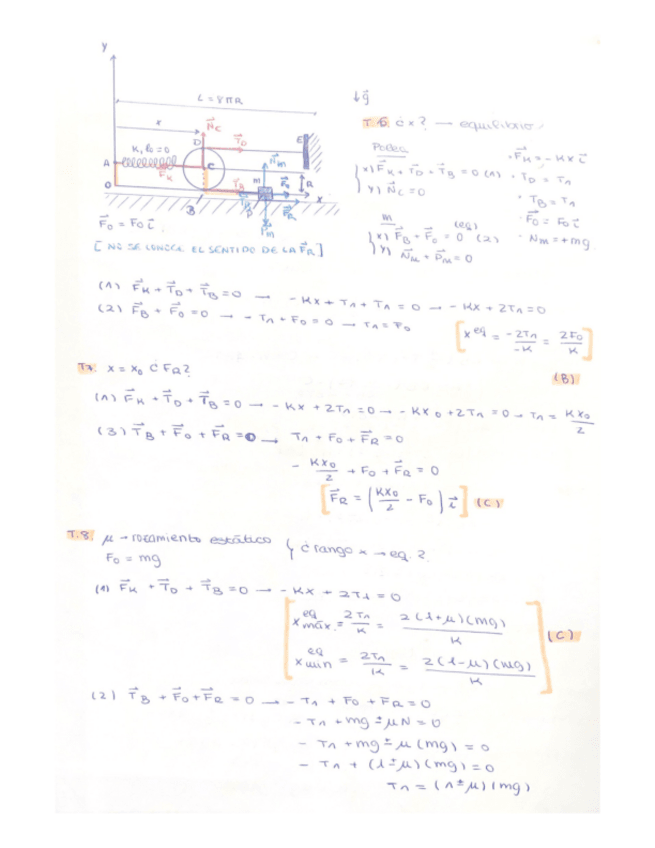 y
L = 4πR
x
K, l₀=0
N⃗c
D
T⃗D
E
A
F⃗K
C
N⃗m
M
R
O
B
T⃗B
F⃗o
F⃗R
x
↓g⃗
F⃗o = Fo i⃗.
[NO SE CONOCE EL SENTIDO DE LA F⃗R]
T.6. ¿x? → equilibrio
Polea
x) F⃗K + T⃗D + T⃗B = 0 (1)
y) N⃗c = 0
· F⃗K = - Kx i⃗
· TD = T1
· TB = T1
· F⃗o = Fo i⃗
· Nm = +mg
m (eq)
x) F⃗B + F⃗o = 0 (2)
y) N⃗m + P⃗m = 0
(1) F⃗K + T⃗D + T⃗B = 0 → - Kx + T1 + T1 = 0 → - Kx + 2T1 = 0
(2) F⃗B + F⃗o = 0 → - T1 + Fo = 0 → T1 = Fo
[x eq = -2T1/-K = 2Fo/K]
(B)
T7. x = x0 ¿FR?
(1) F⃗K + T⃗D + T⃗B = 0 → - Kx + 2T1 = 0 → - Kx0 + 2T1 = 0 → T1 = Kx0/2
(3) T⃗B + F⃗o + F⃗R = 0 → T1 + Fo + F⃗R = 0
- Kx0/2 + Fo + F⃗R = 0
[F⃗R = (Kx0/2 - Fo) i⃗] (C)
T.8. μ → rozamiento estático { ¿rango x → eq.?
Fo = mg
(1) F⃗K + T⃗D + T⃗B = 0 → - Kx + 2T1 = 0
x eq máx. = 2T1/K = 2(1+μ)(mg)/K
x eq min = 2T1/K = 2(1-μ)(mg)/K
(C)
(2) T⃗B + F⃗o + F⃗R = 0 → - T1 + Fo + FR = 0
- T1 + mg ± μN = 0
- T1 + mg ± μ(mg) = 0
- T1 + (1±μ)(mg) = 0
T1 = (1±μ)(mg)